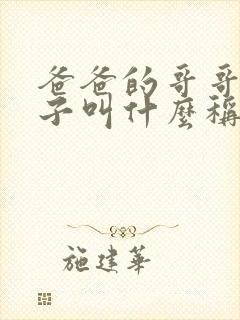 爸爸的哥哥
子叫什麼稱
施建華